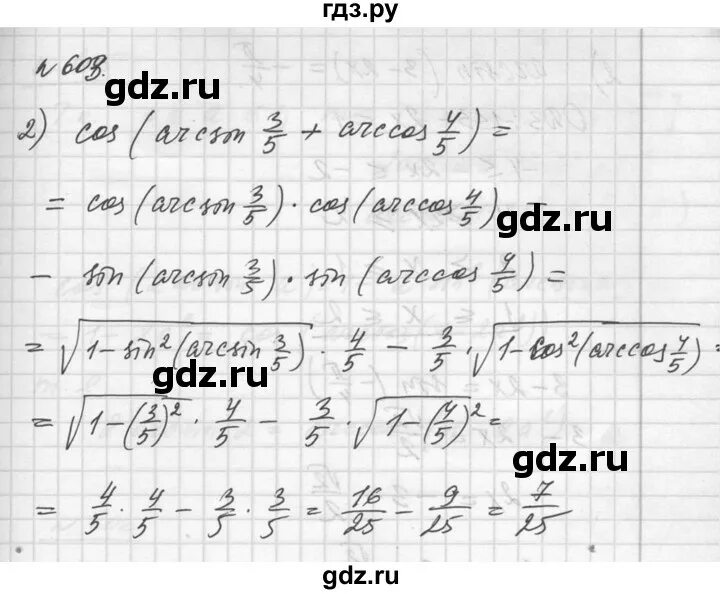 гдз.ру
№ 603.
2) cos(arcsin 3/5 + arccos 4/5) =
= cos(arcsin 3/5) · cos(arccos 4/5) −
gdz.ru
− sin(arcsin 3/5) · sin(arccos 4/5) =
= √(1−sin²(arcsin 3/5)) · 4/5 − 3/5 · √(1−cos²(arccos 4/5)) =
gdz.ru
= √(1−(3/5)²) · 4/5 − 3/5 · √(1−(4/5)²) =
gdz.ru
= 4/5 · 4/5 − 3/5 · 3/5 = 16/25 − 9/25 = 7/25
gdz.ru